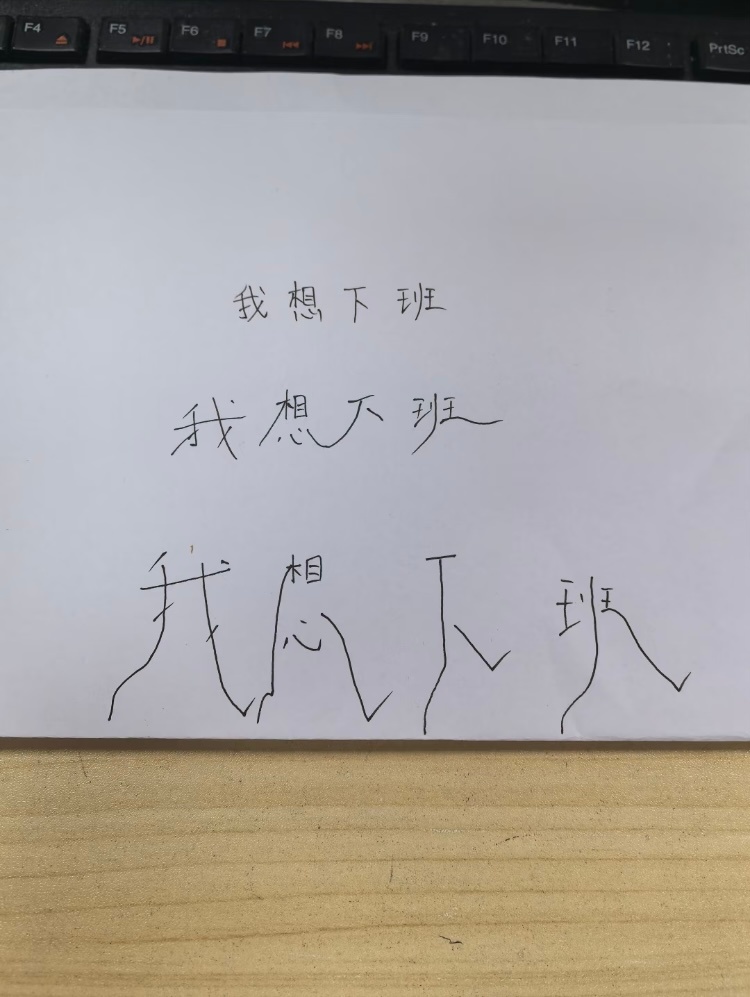 F4 F5 F6 F7 F8 F9 F10 F11 F12 PrtSc
我想下班
我想下班
我想下班